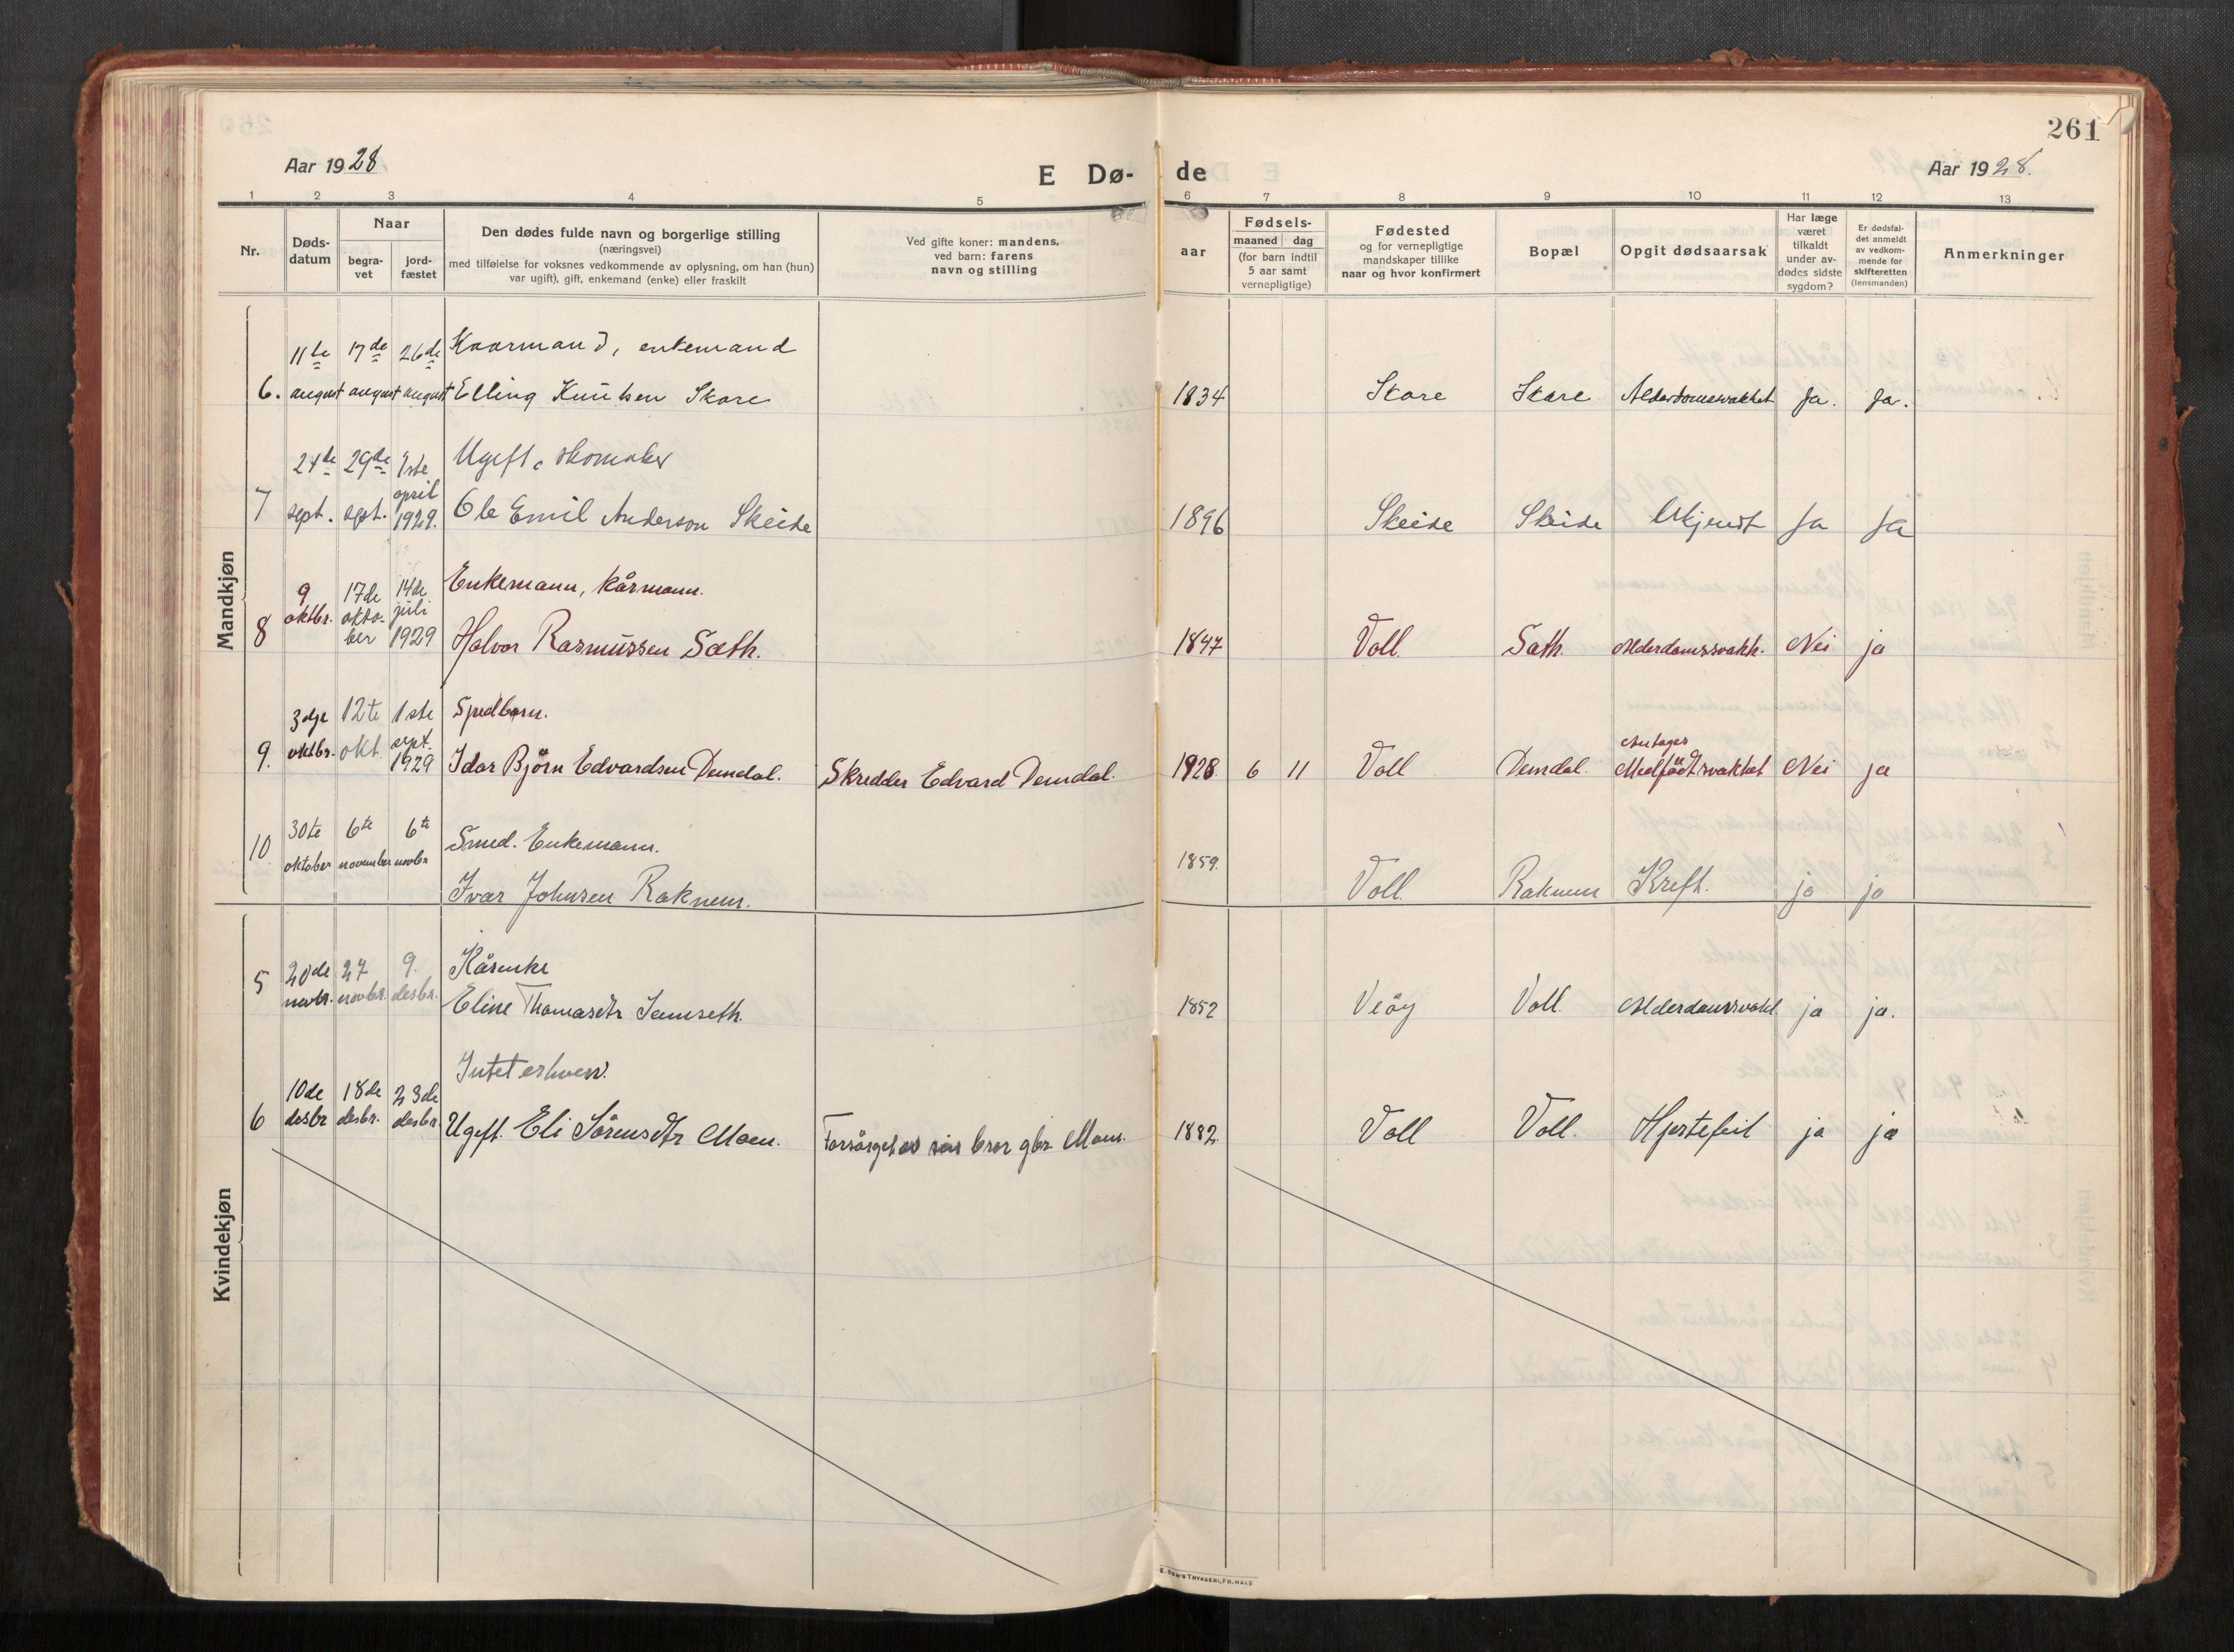 261
Aar 1928
E Dø- de
Aar 1928.
1 2 3 4 5 6 7 8 9 10 11 12 13
Nr.
Døds-
datum
Naar
begra-
vet
jord-
fæstet
Den dødes fulde navn og borgerlige stilling
(næringsvei)
med tilføielse for voksnes vedkommende av oplysning, om han (hun)
var ugift), gift, enkemand (enke) eller fraskilt
Ved gifte koner: mandens,
ved barn: farens
navn og stilling
Fødsels-
aar
maaned dag
(for barn indtil
5 aar samt
vernepligtige)
Fødested
og for vernepligtige
mandskaper tillike
naar og hvor konfirmert
Bopæl
Opgit dødsaarsak
Har læge
været
tilkaldt
under av-
dødes sidste
sygdom?
Er dødsfal-
det anmeldt
av vedkom-
mende for
skifteretten
(lensmanden)
Anmerkninger
Mandkjøn
11te 17de 26de Kaarmand, enkemand
6. august august august Elling Knutsen Skare 1834 Skare Skare Alderdomssvakhet Ja. Ja.
24de 29de 1ste Ugift, skomaker
april
7 sept. sept. 1929. Ole Emil Anderson Skeide 1896 Skeide Skeide Ukjendt Ja Ja
9 17de 14de Enkemann, kårmann.
oktbr. okto- juli
8 ber 1929 Halvor Rasmussen Sæth. 1847 Voll. Sæth. Alderdomssvakh. Nei ja
3dje 12te 1ste Spedbarn.
sept. Antages
9. oktbr. okt. 1929 Idar Bjørn Edvardsen Demdal. Skredder Edvard Demdal. 1928 6 11 Voll Demdal. Medfødt svakhet Nei ja
30te 6te 6te Smed. Enkemann.
10 oktober november novbr 1859.
Ivar Johnsen Raknem. Voll. Raknem Kreft. ja ja
Kvindekjøn
5 20de 27 9. Kårenke
novbr. novbr. desbr. Eline Thomasdtr Semseth. 1852 Veøy Voll. Alderdomssvakh ja ja.
Intet erhverv.
10de 18de 23de
6 desbr desbr. desbr. Ugift. Eli Sørensdtr Moen. Forsørget av sin bror gbr. Moen. 1882. Voll Voll. Hjertefeil ja ja
E. SEM'S TRYKKERI, FR.HALD